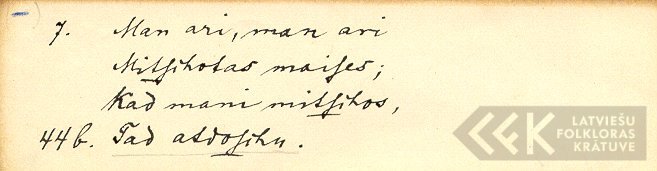 7. Man ari, man ari
Mitſchotas maiſes;
Kad mani mitſchos,
44b. Tad atdoſchu.
LATVIEŠU
FOLKLORAS
KRĀTUVE